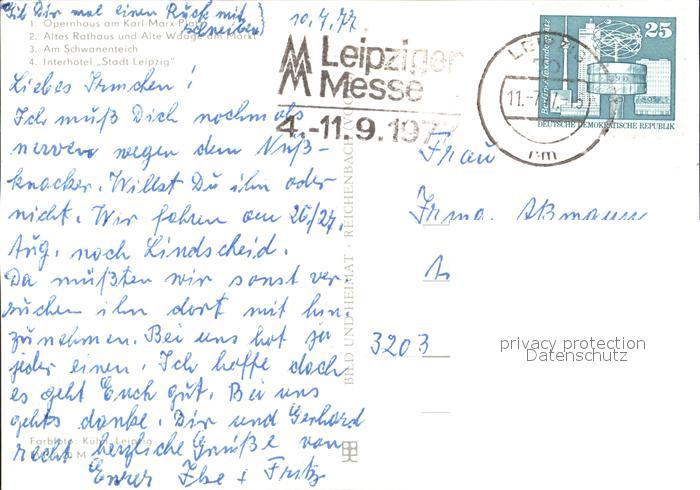 Gib Dir mal einen Ruck mit
schreiben)
10.7.77
1. Opernhaus am Karl-Marx-Platz
2. Altes Rathaus und Alte Waage am Markt
3. Am Schwanenteich
4. Interhotel „Stadt Leipzig"
Liebes Irmchen!
Ich muß Dich nochmals
nerven wegen dem Nuß-
knacker. Willst Du ihn oder
nicht. Wir fahren am 26/27.
Aug. nach Lindscheid.
Da müßten wir sonst ver
suchen ihn dort mit hin
zunehmen. Bei uns hat ja
jeder einen. Ich hoffe doch
es geht Euch gut. Bei uns
gehts danke. Dir und Gerhard
recht herzliche Grüße von
Eurer Ilse + Fritz
Farbfoto: Kühn, Leipzig
BILD UND HEIMAT · REICHENBACH
Leipziger
Messe
4.-11.9.1977
LEIPZIG
11.-7.77
rm
25
DEUTSCHE DEMOKRATISCHE REPUBLIK
Frau
Irma. Aßmann
3203
privacy protection
Datenschutz